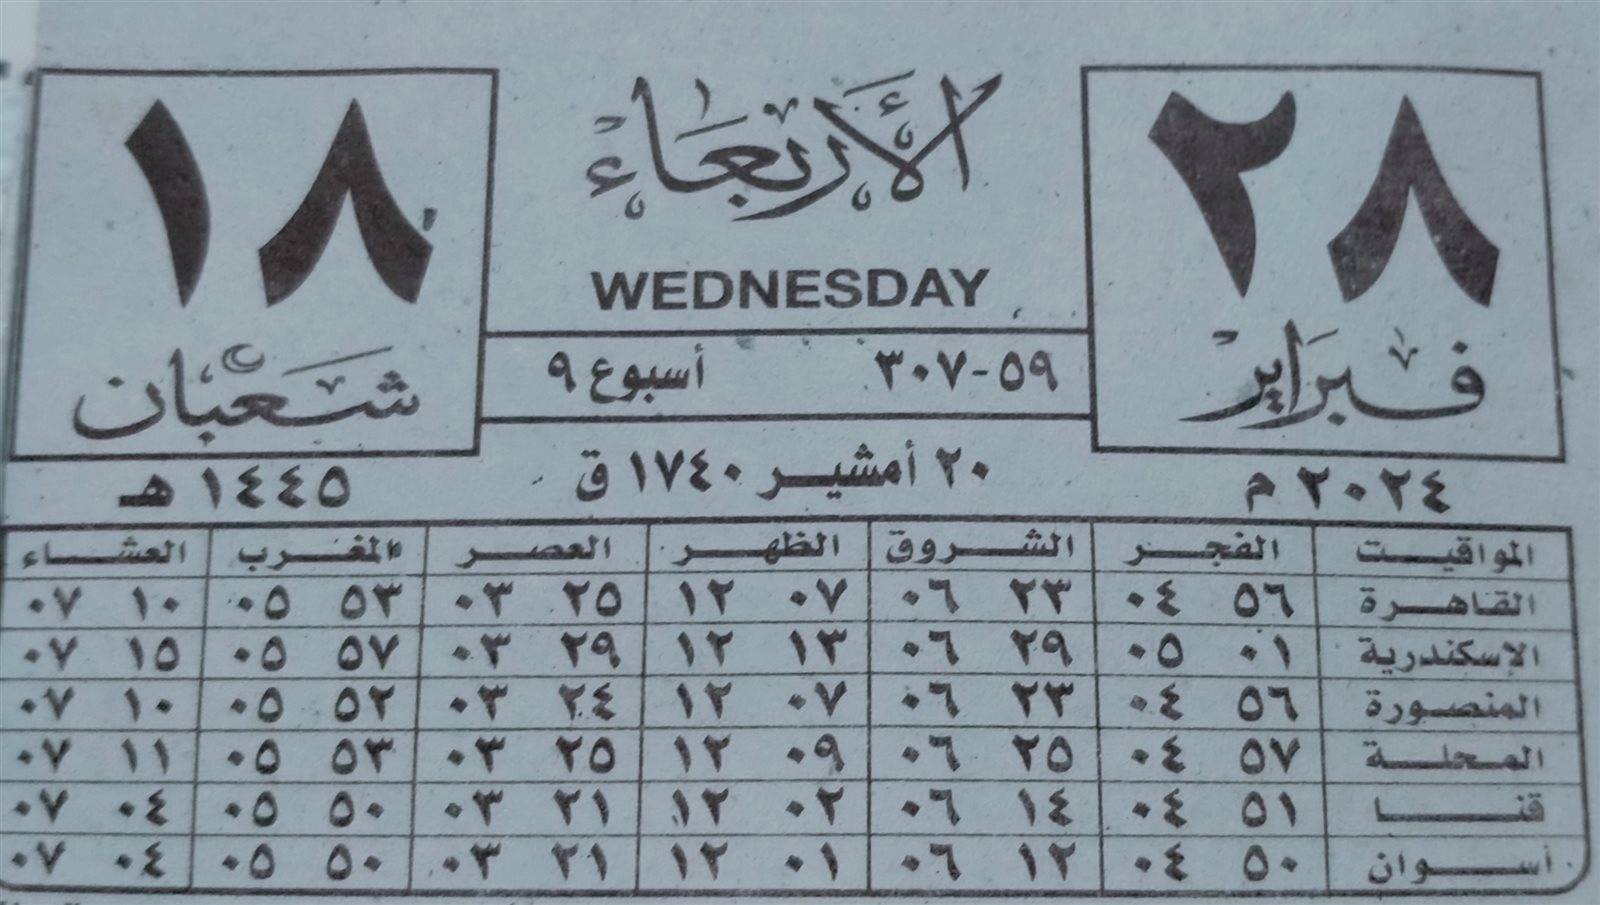 ٢٨
فبراير
٢٠٢٤ م
الأربعاء
WEDNESDAY
٥٩-٣٠٧ أسبوع ٩
٢٠ أمشير ١٧٤٠ ق
١٨
شعبان
١٤٤٥ هـ
المواقيت الفجر الشروق الظهر العصر المغرب العشاء
القاهرة ٥٦ ٠٤ ٢٣ ٠٦ ٠٧ ١٢ ٢٥ ٠٣ ٥٣ ٠٥ ١٠ ٠٧
الإسكندرية ٠١ ٠٥ ٢٩ ٠٦ ١٣ ١٢ ٢٩ ٠٣ ٥٧ ٠٥ ١٥ ٠٧
المنصورة ٥٦ ٠٤ ٢٣ ٠٦ ٠٧ ١٢ ٢٤ ٠٣ ٥٢ ٠٥ ١٠ ٠٧
المحلة ٥٧ ٠٤ ٢٥ ٠٦ ٠٩ ١٢ ٢٥ ٠٣ ٥٣ ٠٥ ١١ ٠٧
قنا ٥١ ٠٤ ١٤ ٠٦ ٠٢ ١٢ ٢١ ٠٣ ٥٠ ٠٥ ٠٤ ٠٧
أسوان ٥٠ ٠٤ ١٢ ٠٦ ٠١ ١٢ ٢١ ٠٣ ٥٠ ٠٥ ٠٤ ٠٧